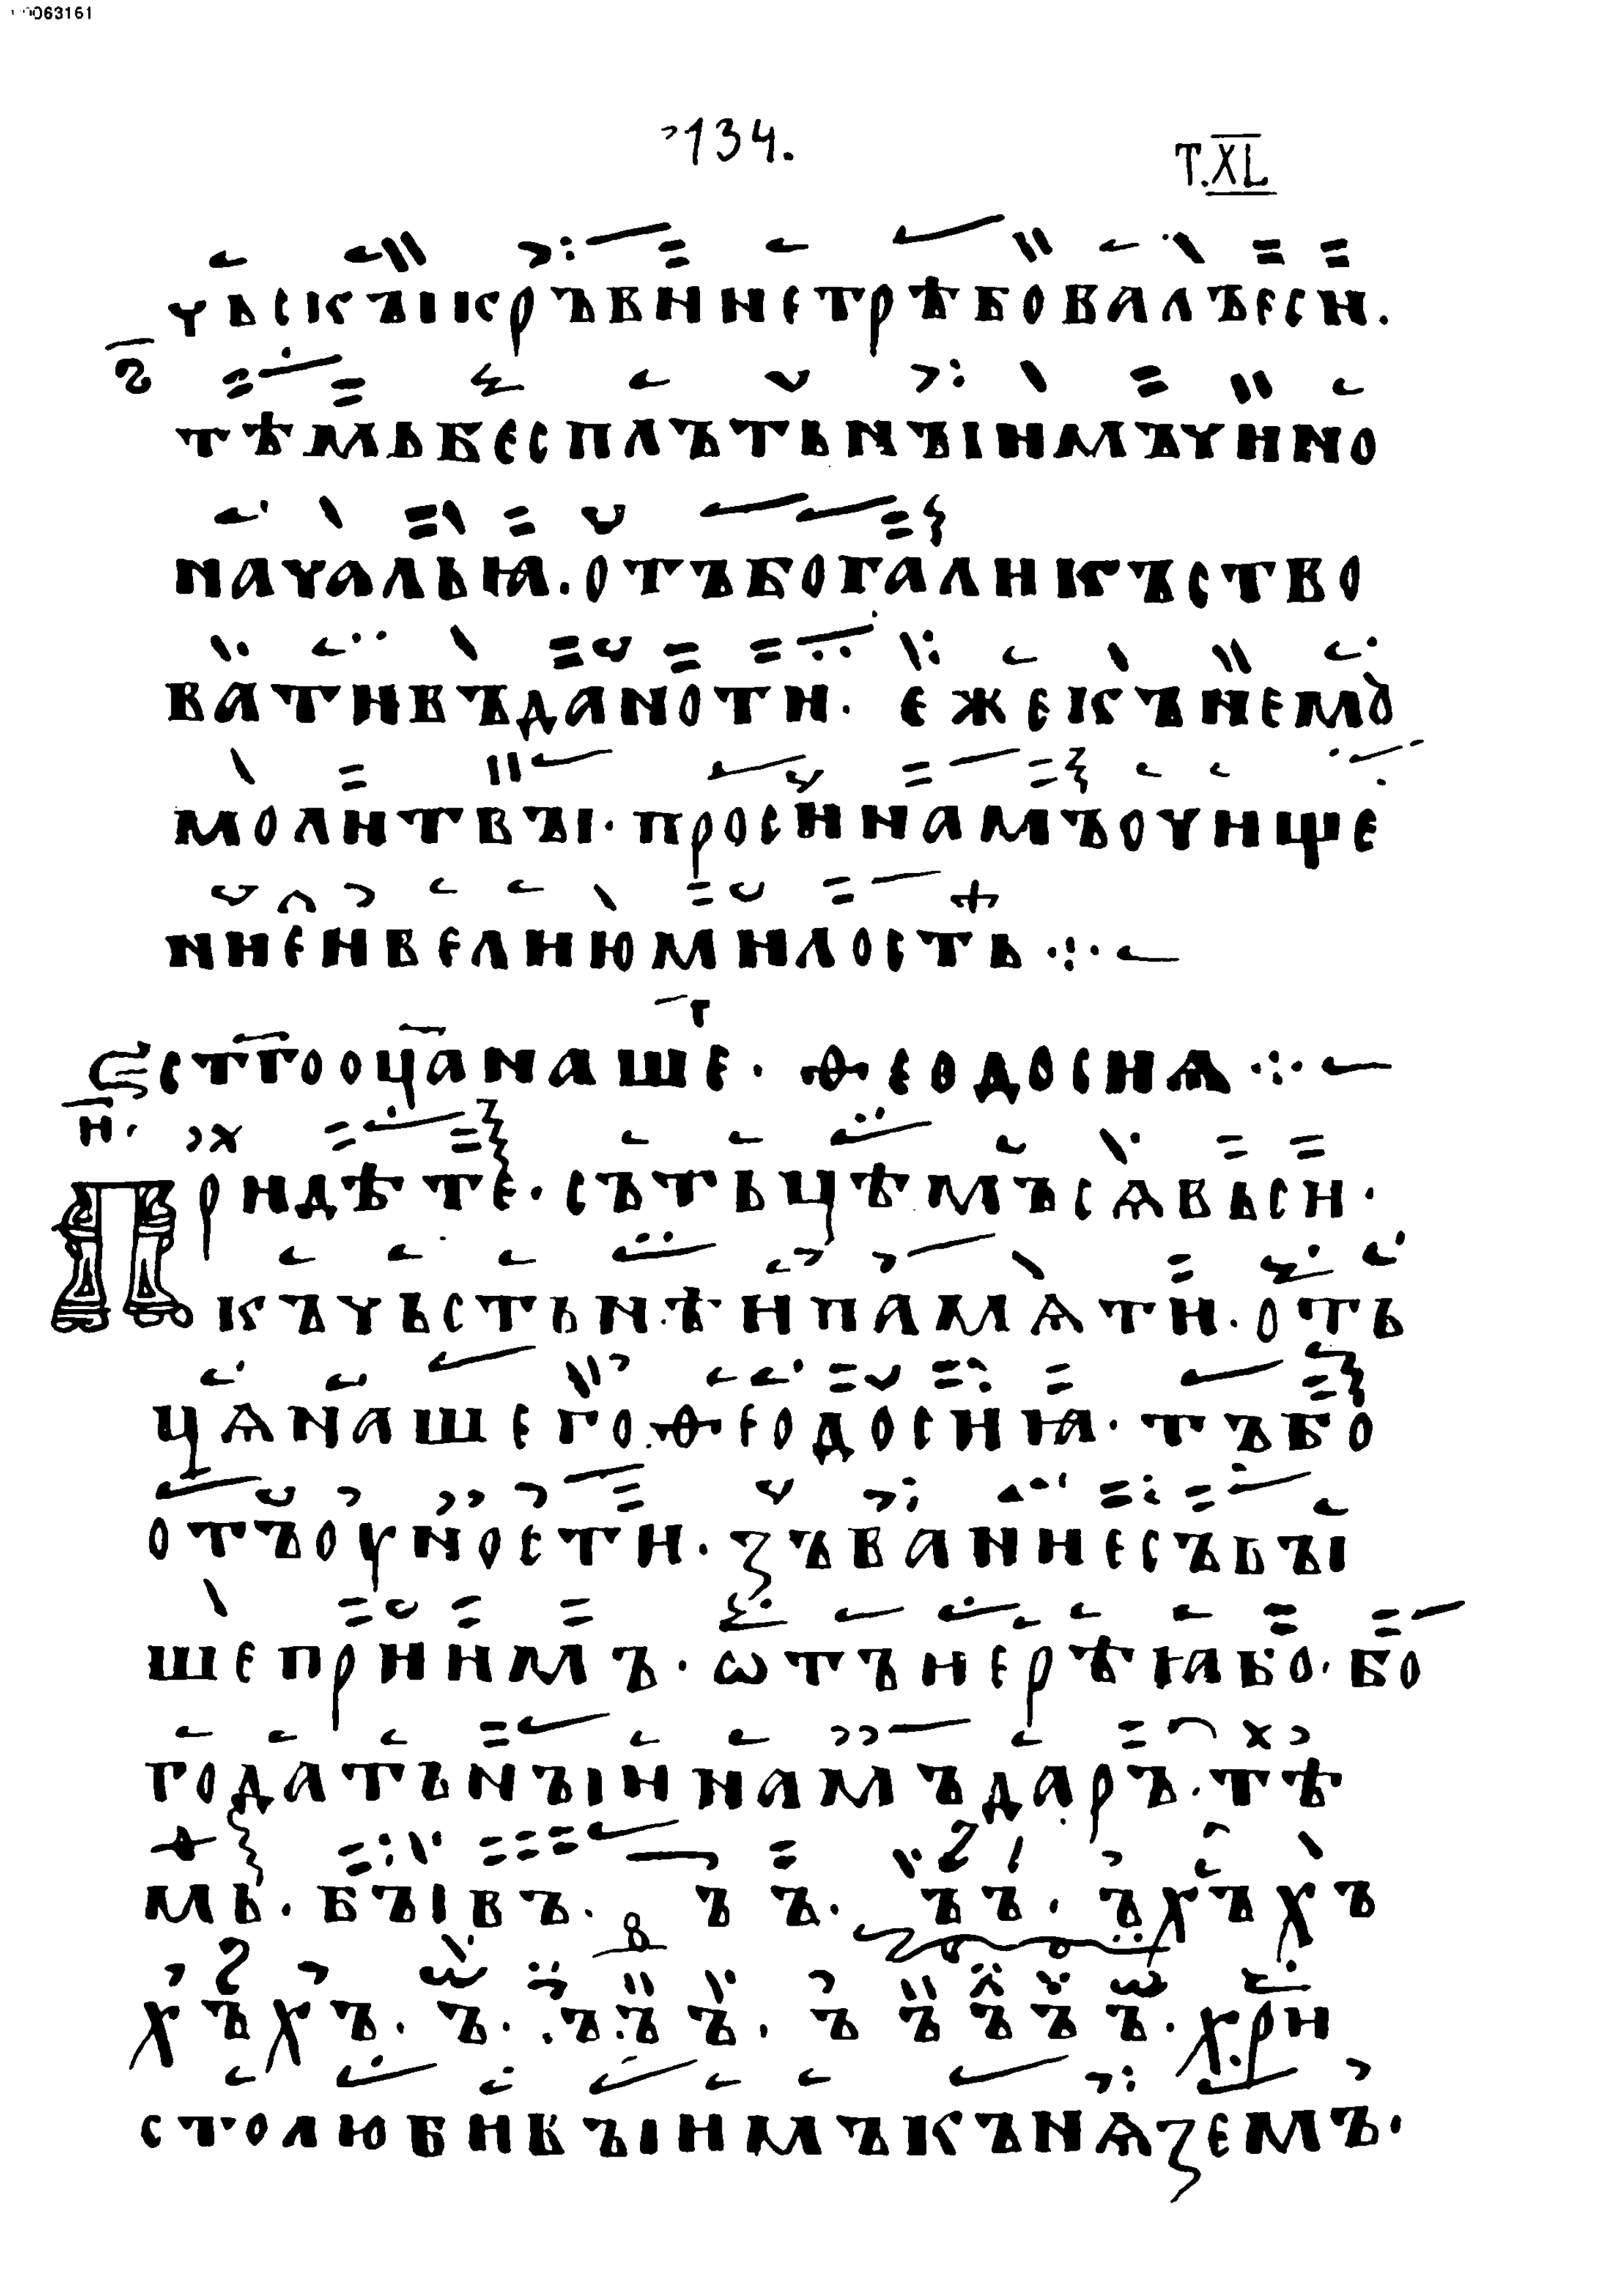 063161
134.
T.XL
чьскъікръвинетрѣбовалъеси.
тѣмьбесплътьнъіимъчино
началья.отъбогаликъство
вативъданоти. ежекънемꙋ
молитвъі·просинамъоунще
ниеивелиюмилость·:·
стгооцанаше. т ѳеодосиѧ·:·
н·
Придѣте·сътьцѣмъсѧвьси·
къчьстьнѣипамѧти·оть
цѧнашего.ѳеодосиꙗ·тъбо
отъоуности·зъваниесъвъі
шеприимъ·ѡтънерѣꙗко·бо
годатьнъіинамъдаръ·тѣ
мь·бъівъ. ъ ъ. ъъ. ъхъхъ
хъхъ. ъ. ъъъ. ъ ъъъъ. хри
столюбивъіимъкънѧземъ·